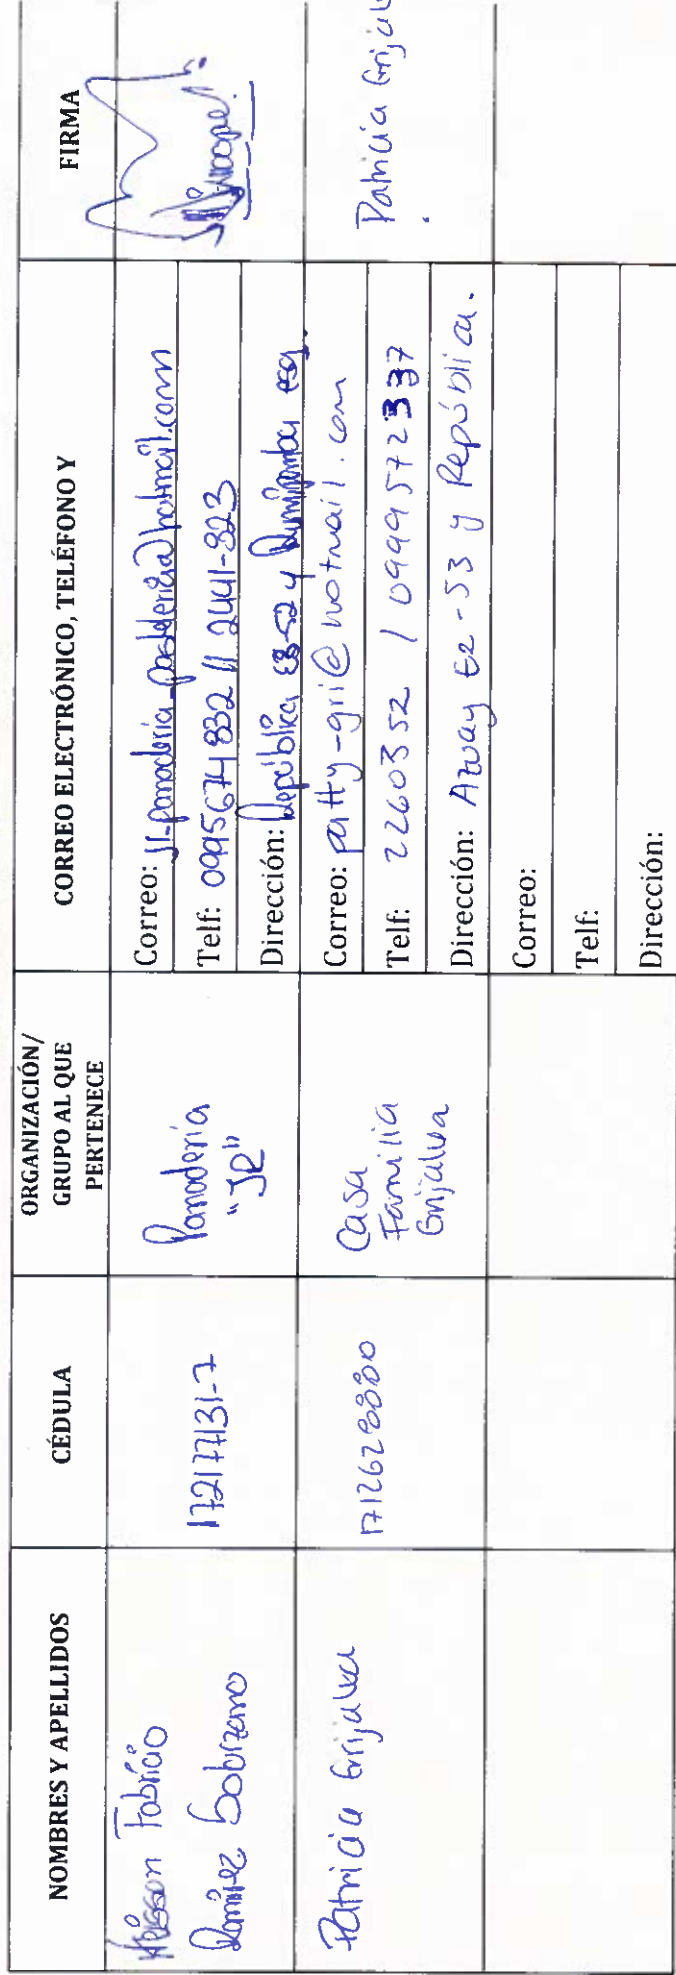 NOMBRES Y APELLIDOS
CÉDULA
ORGANIZACIÓN/
GRUPO AL QUE
PERTENECE
CORREO ELECTRÓNICO, TELÉFONO Y
FIRMA
Fabricio
Ramírez Solorzano
172177131-7
Panadería
"JR"
Correo: jr-panaderia-pasteleria@hotmail.com
Telf: 0995674832 // 2441-823
Dirección: República E3-52 y Rumipamba esq.
Patricia Grijalva
1712628880
Casa
Familia
Grijalva
Correo: patty-gri@hotmail.com
Telf: 2260352 / 0999572337
Dirección: Azuay E2-53 y República.
Patricia Grijalv
Correo:
Telf:
Dirección: